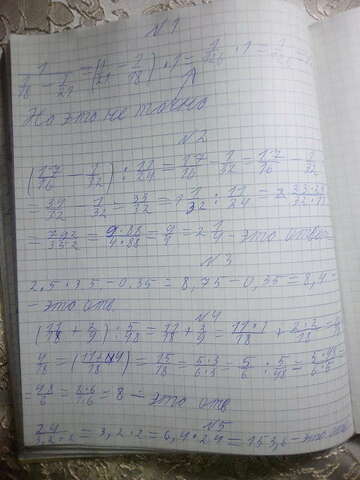 N 1
1/18 - 1/21 = (1/21 - 1/18) · 1 = 1/126 · 1 = 1/126
На это не точно
N 2
(17/16 - 1/32) : 11/24 = 17/16 - 1/32 = 17/16 - 1/32
= 34/32 - 1/32 = 33/32 = 1 1/32 : 11/24 = 33·24/32·11
= 792/352 = 9·88/4·88 = 9/4 = 2 1/4 - это ответ
N 3
2,5 · 3,5 - 0,35 = 8,75 - 0,35 = 8,4 -
- это отв.
N 4
(11/18 + 2/9) : 5/48 = 11/18 + 2/9 = 11·1/18 + 2·2/18 =
4/18 = (11+4/18) = 15/18 = 5·3/6·3 = 5/6 : 5/48 = 5·48/6·5
= 48/6 = 8·6/1·6 = 8 - это отв
N 5
= 3,2 · 2 = 6,4 · 24 = 153,6 - это отв